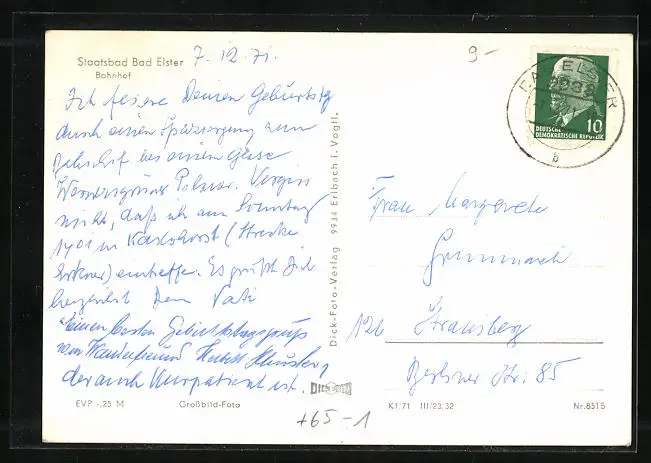 Staatsbad Bad Elster
Bahnhof
7. 12. 71.
Ich feiere Deinen Geburtstg
durch einen Spaziergang zum
bei einem Glase
Wernesgrüner Pilsner. Vergiss
nicht, daß ich am Sonntag
1401 in Karlshorst (Strecke
Erkner) eintreffe. Es grüßt Dich
herzlichst Dein Vati
Einen besten Geburtstagsgruß
vom Wanderfreund
der auch Kurpatient ist.
EVP -,25 M
Großbild-Foto
Dick-Foto-Verlag 9934 Erlbach i. Vogtl.
DICK
9-
BAD ELSTER
9933
b
10
DEUTSCHE
DEMOKRATISCHE REPUBLIK
Frau Margarete
126 Strausberg
Berliner Str. 85
K1/71 III/23/32
Nr. 8515
+65-1